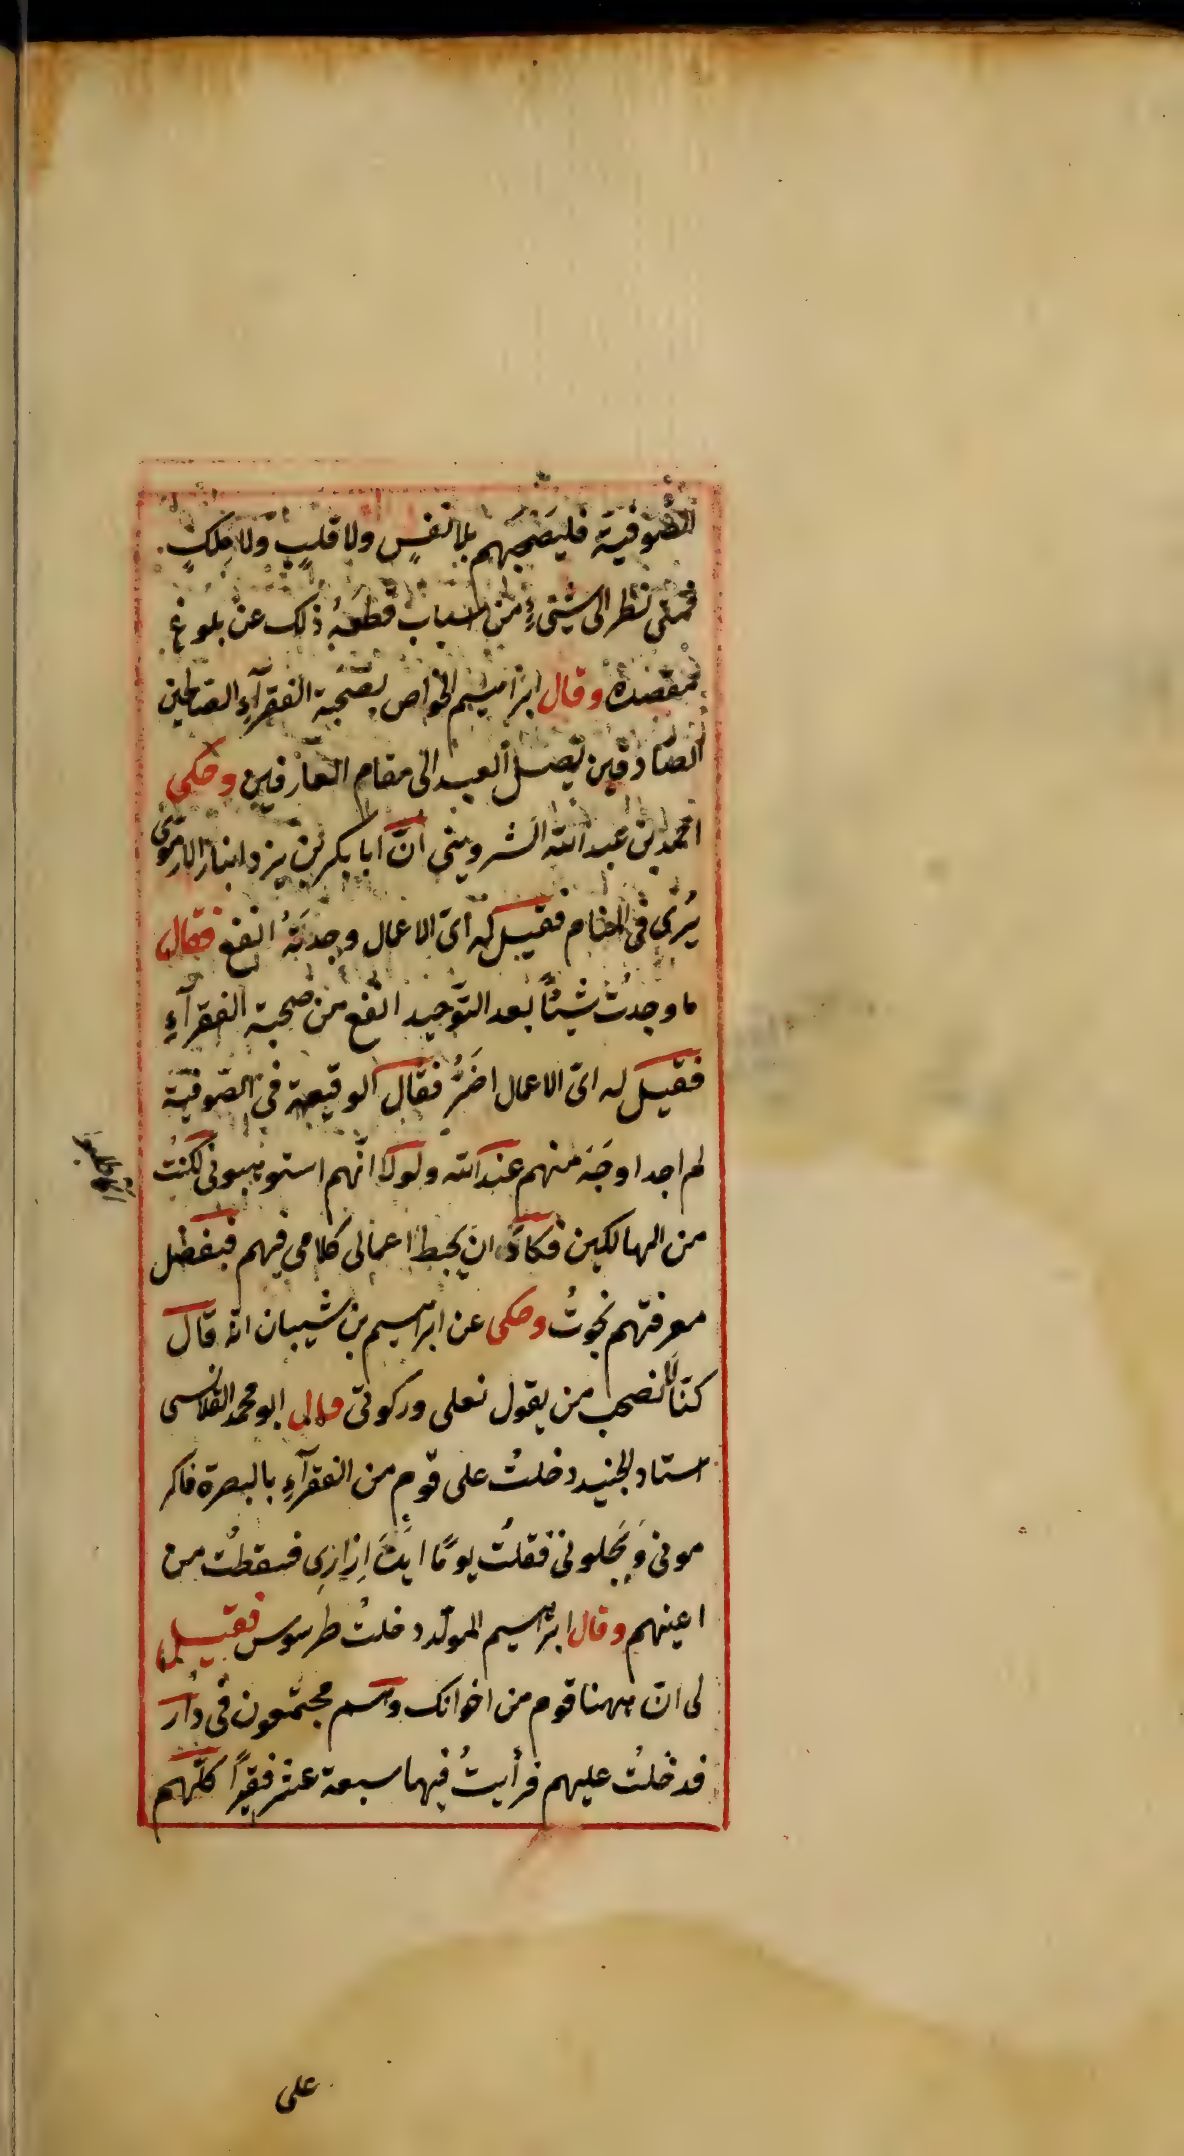 الصوفية فليصحبهم بلا نفسٍ ولا قلبٍ ولا مِلكٍ
فمتى نظر الى شيءٍ من اسباب قطعهُ ذلك عن بلوغ
مقصده وقال ابراهيم الخواص بصحبة الفقرآءِ الصالحين
الصادقين يصل العبد الى مقام العارفين وحكى
احمد بن عبد الله الشرويني انّ ابا بكر بن يزدانيار الارموى
يُرى فى المنام فقيل له اىّ الاعمال وجدتَهُ انفع فقال
ما وجدتُ شيئًا بعد التّوحيد انفع من صحبة الفقرآءِ
فقيل له اىّ الاعمال اضَرُّ فقال الوقيعة فى الصّوفيّة
لم اجد اوجَهَ منهم عند الله ولولا انّهم استوهبونى لكنتُ
من الهالكين فكادَ ان يحبط اعمالى كلامى فيهم فبفضل
معرفتهم نجوتُ وحكى عن ابراهيم بن شيبان انّه قال
كنّا لا نصحب من يقول نعلى وركوتى وقال ابو محمد القلانسى
استاد الجنيد دخلتُ على قوم من الفقرآءِ بالبصرة فاكر
مونى وَبَجّلونى فقلتُ يومًا اينَ اِزارى فسقطتُ من
اعينهم وقال ابراهيم المولّد دخلتُ طرسوس فقيل
لى انّ ههنا قوم من اخوانك وهم مجتمعون فى دار
فدخلتُ عليهم فرأيتُ فيها سبعة عشر فقيرًا كلّهم
على